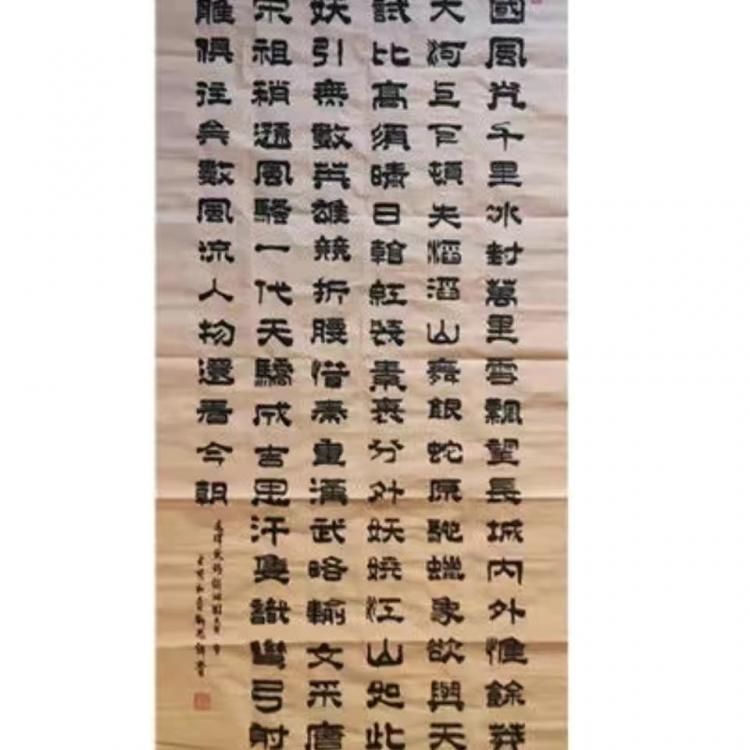 國風光千里冰封萬里雪飄望長城內外惟餘莽
大河上下頓失滔滔山舞銀蛇原馳蠟象欲與天
試比高須晴日看紅裝素裹分外妖嬈江山如此
妖引無數英雄競折腰惜秦皇漢武略輸文采唐
宋祖稍遜風騷一代天驕成吉思汗隻識彎弓射
雕俱往矣數風流人物還看今朝
毛澤東詩詞沁園春雪